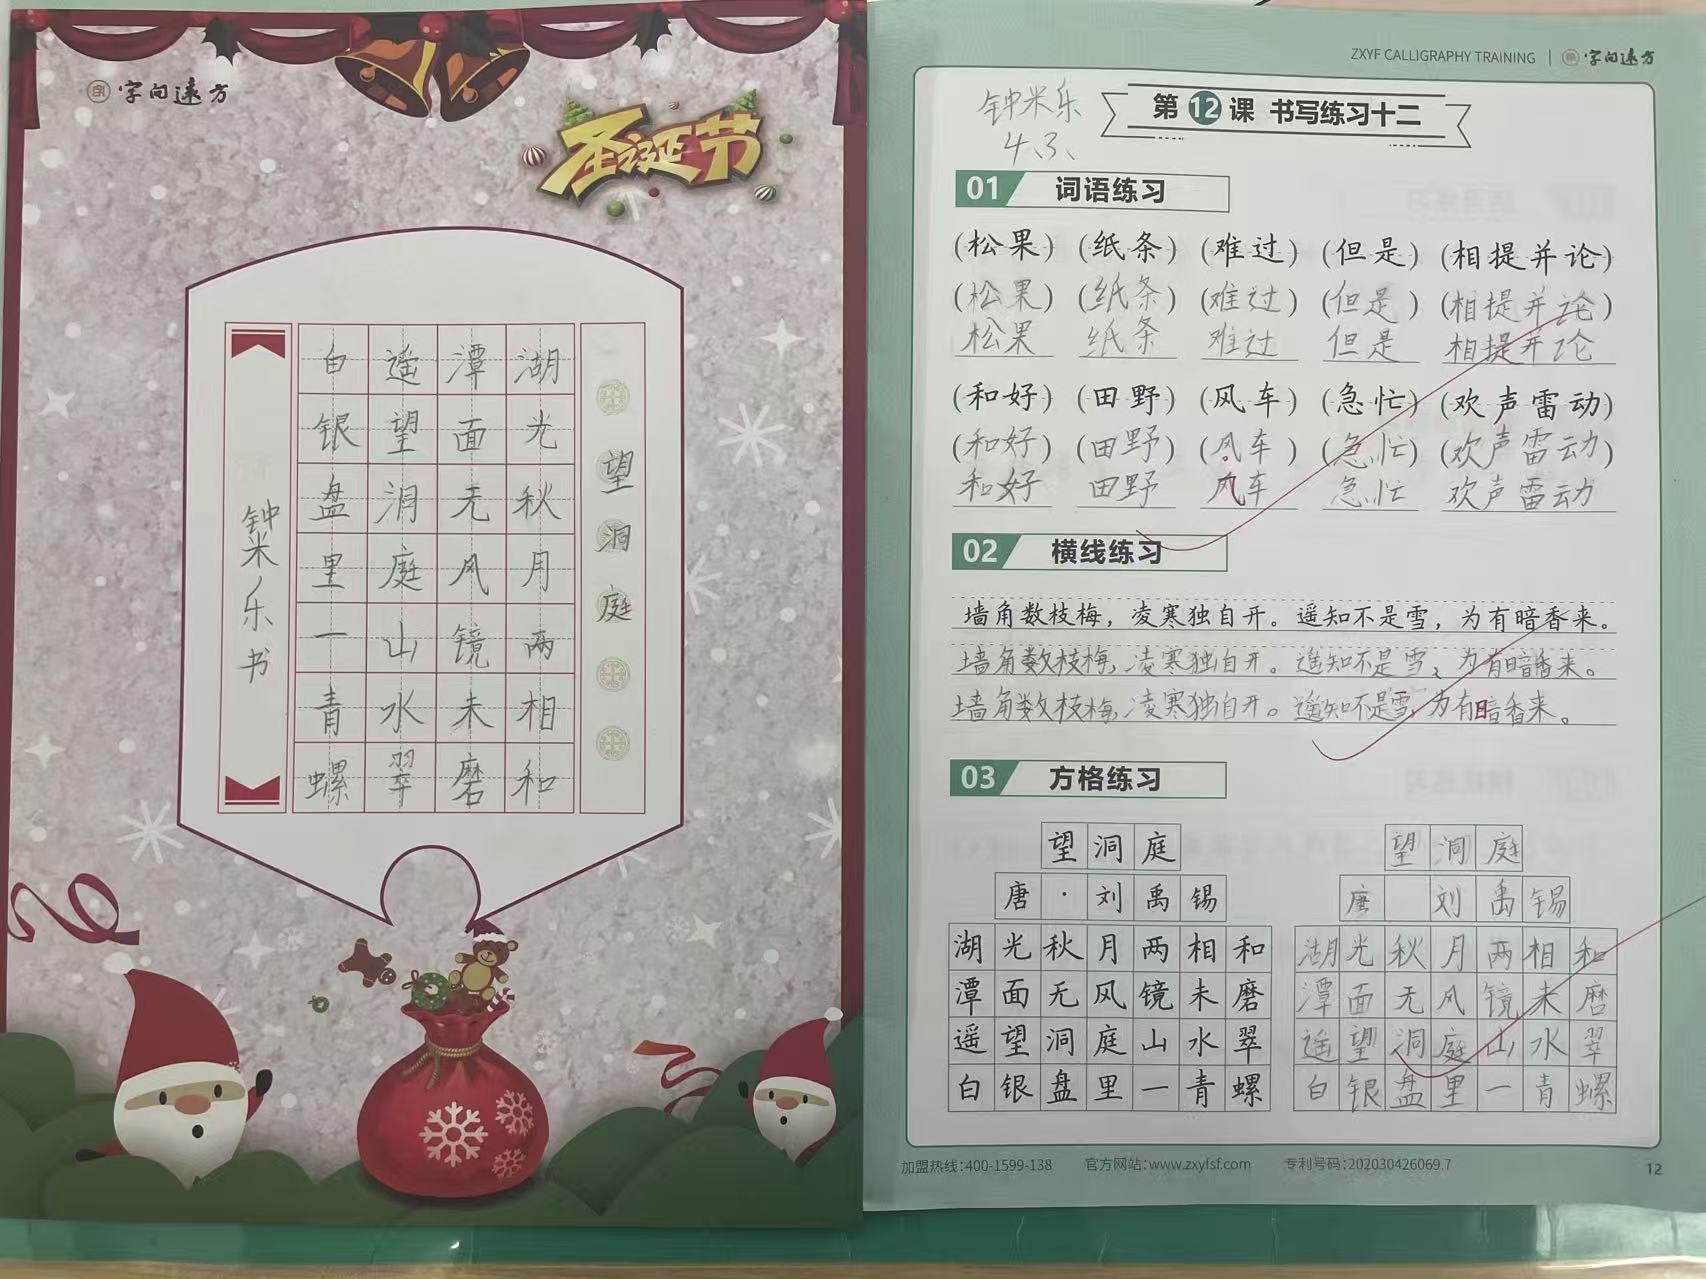 字向远方
圣诞节
望洞庭
湖光秋月两相和
潭面无风镜未磨
遥望洞庭山水翠
白银盘里一青螺
钟米乐书
ZXYF CALLIGRAPHY TRAINING | 字向远方
钟米乐
4、3、
第12课 书写练习十二
01 词语练习
(松果) (纸条) (难过) (但是) (相提并论)
(松果) (纸条) (难过) (但是) (相提并论)
松果 纸条 难过 但是 相提并论
(和好) (田野) (风车) (急忙) (欢声雷动)
(和好) (田野) (风车) (急忙) (欢声雷动)
和好 田野 风车 急忙 欢声雷动
02 横线练习
墙角数枝梅，凌寒独自开。遥知不是雪，为有暗香来。
墙角数枝梅，凌寒独自开。遥知不是雪，为有暗香来。
墙角数枝梅，凌寒独自开。遥知不是雪，为有暗香来。
03 方格练习
望洞庭
唐·刘禹锡
湖光秋月两相和
潭面无风镜未磨
遥望洞庭山水翠
白银盘里一青螺
望洞庭
唐 刘禹锡
湖光秋月两相和
潭面无风镜未磨
遥望洞庭山水翠
白银盘里一青螺
加盟热线:400-1599-138 官方网站:www.zxyfsf.com 专利号码:202030426069.7
12